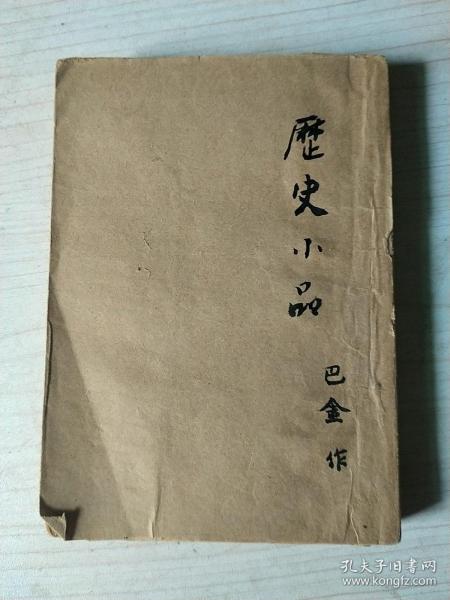 歷史小品
巴金作
孔夫子旧书网
www.kongfz.com